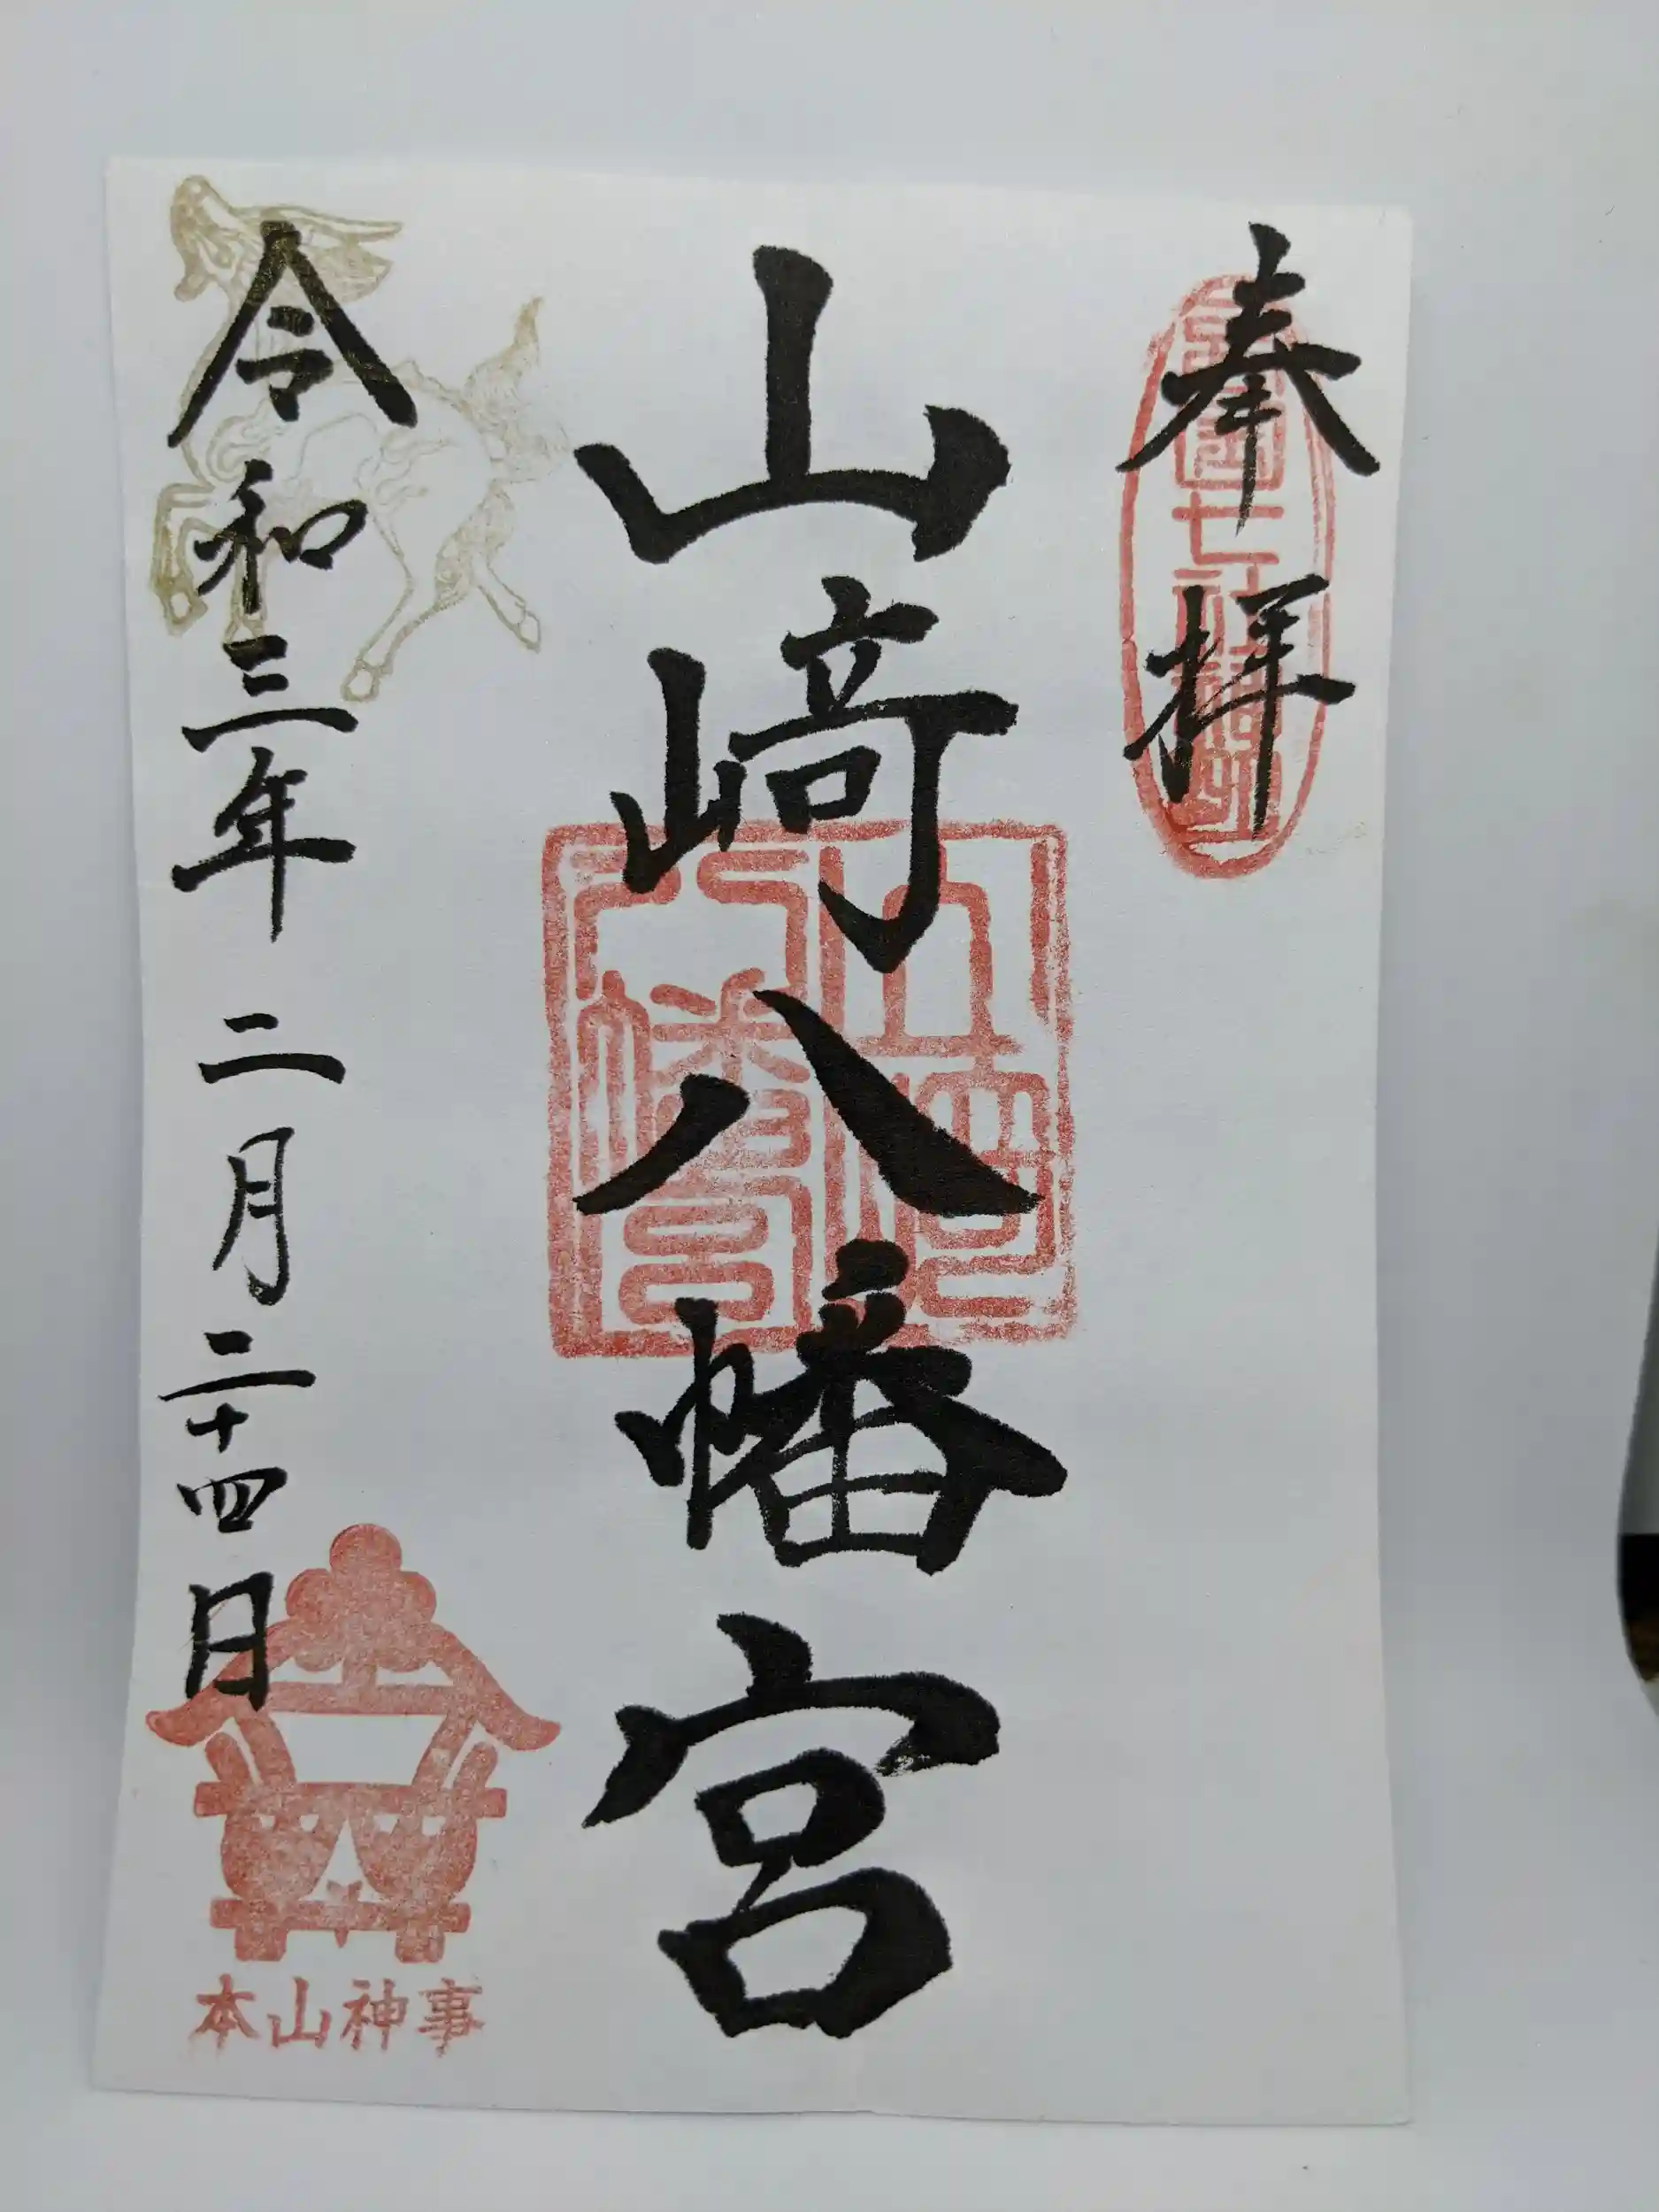 奉拝
山﨑八幡宮
山崎八幡宮
令和三年 二月二十四日
本山神事